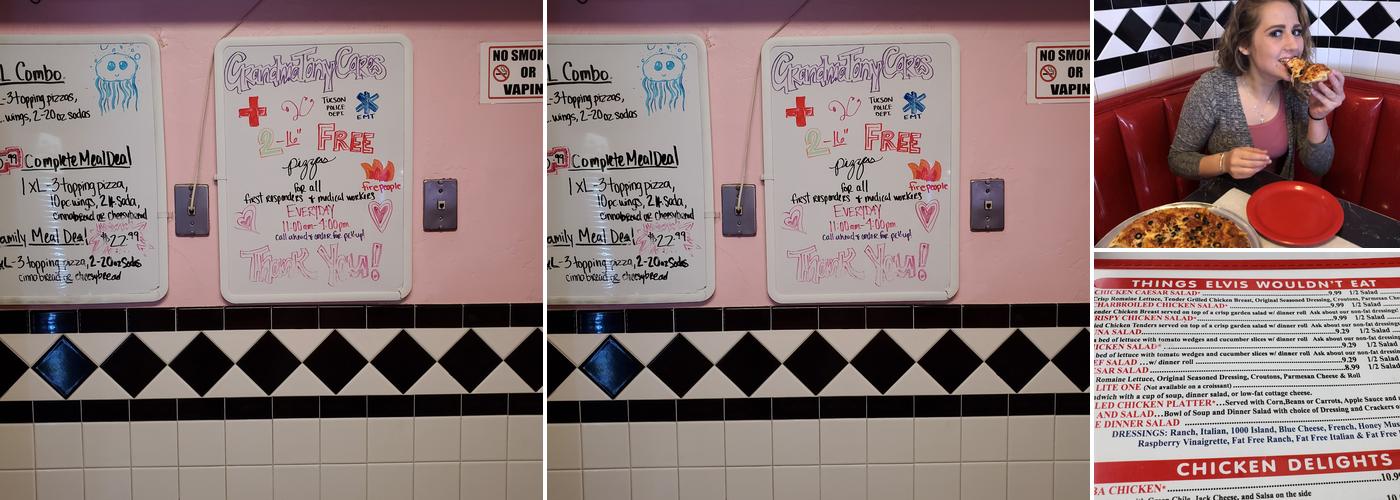 L Combo.
L-3-topping pizzas,
wings, 2-20oz sodas
.99 Complete Meal Deal
1 XL-3-topping pizza,
10pc wings, 2lt Soda,
cinnabread or cheesybread
amily Meal Deal $22.99
XL-3-topping pizza, 2-20oz Sodas
cinnobread or cheesybread
GrandmaTony Cares
TUCSON
POLICE
DEPT.
EMT
2-16" FREE
pizzas
for all
fire people
first responders & medical workers
EVERYDAY
11:00am-4:00pm
call ahead & order for pick up!
Thank You!
NO SMOK
OR
VAPIN
L Combo.
L-3-topping pizzas,
wings, 2-20oz sodas
.99 Complete Meal Deal
1 XL-3-topping pizza,
10pc wings, 2lt Soda,
cinnabread or cheesybread
amily Meal Deal $22.99
XL-3-topping pizza, 2-20oz Sodas
cinnobread or cheesybread
GrandmaTony Cares
TUCSON
POLICE
DEPT.
EMT
2-16" FREE
pizzas
for all
fire people
first responders & medical workers
EVERYDAY
11:00am-4:00pm
call ahead & order for pick up!
Thank You!
NO SMOK
OR
VAPIN
THINGS ELVIS WOULDN'T EAT
CHICKEN CAESAR SALAD* 9.99 1/2 Salad
Crisp Romaine Lettuce, Tender Grilled Chicken Breast, Original Seasoned Dressing, Croutons, Parmesan Chees
CHARBROILED CHICKEN SALAD* 9.99 1/2 Salad
ender Chicken Breast served on top of a crisp garden salad w/ dinner roll Ask about our non-fat dressings!
RISPY CHICKEN SALAD* 9.99 1/2 Salad
ded Chicken Tenders served on top of a crisp garden salad w/ dinner roll Ask about our non-fat dressings
UNA SALAD 9.29 1/2 Salad
a bed of lettuce with tomato wedges and cucumber slices w/ dinner roll Ask about our non-fat dressing
HICKEN SALAD* 9.29 1/2 Salad
bed of lettuce with tomato wedges and cucumber slices w/ dinner roll Ask about our non-fat dress
EF SALAD ...w/ dinner roll 9.29 1/2 Salad
ESAR SALAD 8.99 1/2 Sala
Romaine Lettuce, Original Seasoned Dressing, Croutons, Parmesan Cheese & Roll
LITE ONE (Not available on a croissant)
ndwich with a cup of soup, dinner salad, or low-fat cottage cheese.
LED CHICKEN PLATTER*...Served with Corn, Beans or Carrots, Apple Sauce and
AND SALAD...Bowl of Soup and Dinner Salad with choice of Dressing and Crackers o
E DINNER SALAD
DRESSINGS: Ranch, Italian, 1000 Island, Blue Cheese, French, Honey Mus
Raspberry Vinaigrette, Fat Free Ranch, Fat Free Italian & Fat Free
CHICKEN DELIGHTS
BA CHICKEN* 10.9
with Green Chile, Jack Cheese, and Salsa on the side